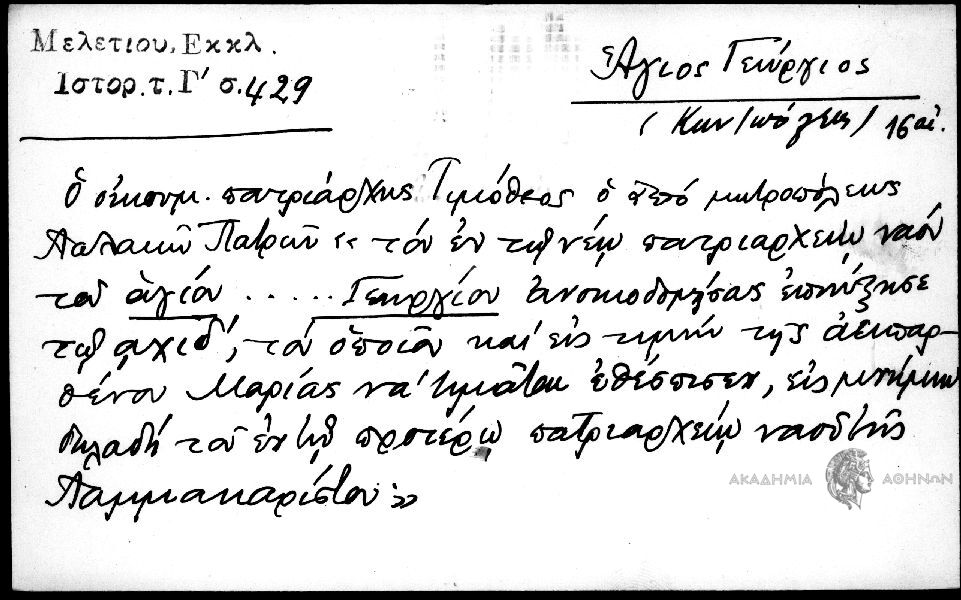 Μελετιου, Εκκλ.
Ιστορ. τ. Γ' σ. 429
Ἅγιος Γεώργιος
(Κων/πόλεως) 16 αἰ.
Ὁ οἰκουμ. πατριάρχης Τιμόθεος ὁ ἀπό μητροπόλεως
Παλαιῶν Πατρῶν « τόν ἐν τῷ νέῳ πατριαρχείῳ ναόν
τοῦ ἁγίου ..... Γεωργίου ἀνοικοδομήσας ἐπηύξησε
τῷ αχιδ', τόν ὁποῖον καί εἰς τιμήν τῆς ἀειπαρ-
θένου Μαρίας νά τιμᾶται ἐθέσπισεν, εἰς μνήμην
δηλαδή τοῦ ἐν τῷ προτέρῳ πατριαρχείῳ ναοῦ τῆς
Παμμακαρίστου »
ΑΚΑΔΗΜΙΑ ΑΘΗΝΩΝ